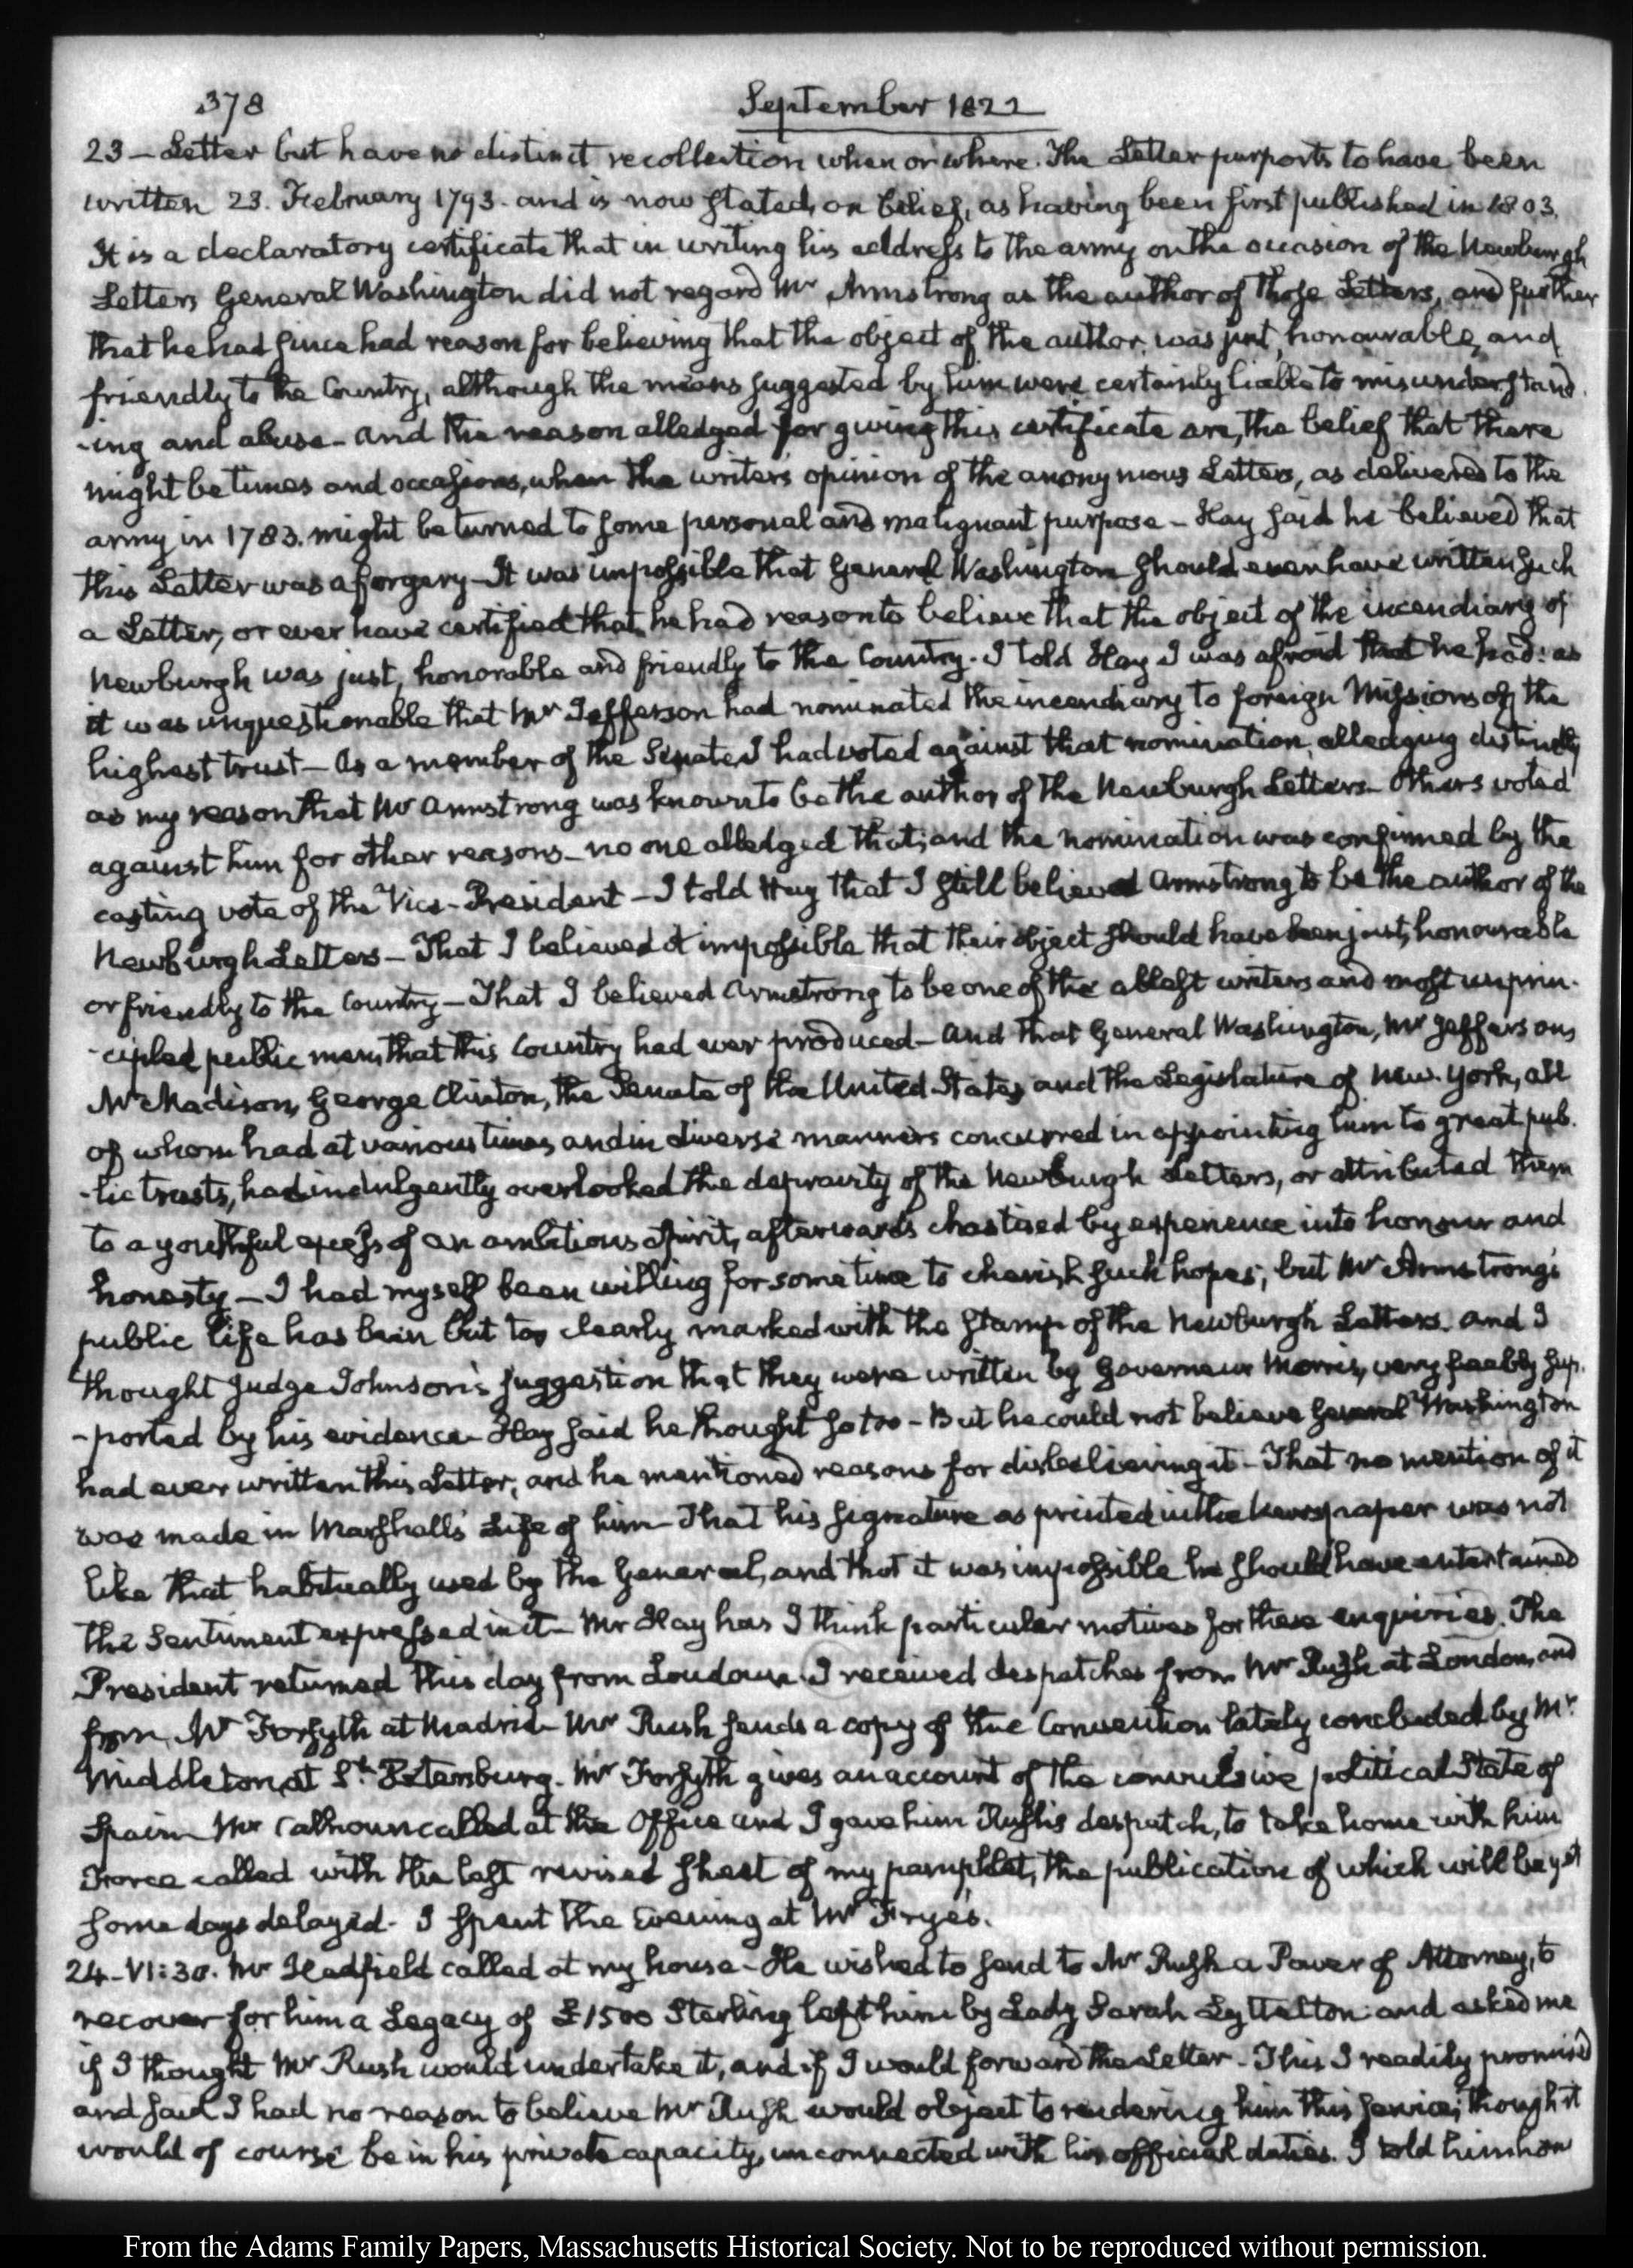 378 September 1822
23 - Letter but have no distinct recollection when or where. The Letter purports to have been
written 23. February 1793. and is now stated, on belief, as having been first published in 1803.
It is a declaratory certificate that in writing his address to the army on the occasion of the Newburgh
Letters General Washington did not regard Mr Armstrong as the author of those Letters, and further
that he had since had reason for believing that the object of the author, was just, honourable, and
friendly to the Country, although the means suggested by him were certainly liable to misunderstand
-ing and abuse - and the reason alledged for giving this certificate are, the belief that there
might be times and occasions, when the writer's opinion of the anonymous Letters, as delivered to the
army in 1783. might be turned to some personal and malignant purpose - Hay said he believed that
this Letter was a forgery - It was impossible that General Washington should ever have written such
a Letter, or ever have certified that he had reason to believe that the object of the incendiary of
Newburgh was just, honorable and friendly to the Country. I told Hay I was afraid that he had: as
it was unquestionable that Mr Jefferson had nominated the incendiary to foreign Missions of the
highest trust - As a member of the Senate I had voted against that nomination, alledging distinctly
as my reason that Mr Armstrong was known to be the author of the Newburgh Letters - Others voted
against him for other reasons - no one alledged that; and the nomination was confirmed by the
casting vote of the Vice-President - I told Hay that I still believed Armstrong to be the author of the
Newburgh Letters - That I believed it impossible that their object should have been just, honourable
or friendly to the Country - That I believed Armstrong to be one of the ablest writers and most unprin-
-cipled public men, that this Country had ever produced - And that General Washington, Mr Jefferson,
Mr Madison, George Clinton, the Senate of the United States, and the Legislature of New-York, all
of whom had at various times and in diverse manners concurred in appointing him to great pub-
-lic trusts, had indulgently overlooked the depravity of the Newburgh Letters, or attributed them
to a youthful excess of an ambitious spirit, afterwards chastised by experience into honour and
honesty - I had myself been willing for some time to cherish such hopes; but Mr Armstrong's
public life has been but too clearly marked with the stamp of the Newburgh Letters. And I
thought Judge Johnson's suggestion that they were written by Governeur Morris, very feebly sup-
-ported by his evidence - Hay said he thought so too - But he could not believe General Washington
had ever written this Letter; and he mentioned reasons for disbelieving it - That no mention of it
was made in Marshall's Life of him - That his signature as printed in the Newspaper was not
like that habitually used by the General, and that it was impossible he should have entertained
the Sentiment expressed in it - Mr Hay has I think particular motives for these enquiries. The
President returned this day from Loudoun. I received despatches from Mr Rush at London, and
from Mr Forsyth at Madrid - Mr Rush sends a copy of the Convention lately concluded by Mr
Middleton, at St. Petersburg. Mr Forsyth gives an account of the convulsive political State of
Spain - Mr Calhoun called at the Office and I gave him Rush's despatch, to take home with him
Force called with the last revised sheet of my pamphlet, the publication of which will be yet
some days delayed - I spent the Evening at Mr Frye's.
24 - VI:30. Mr Hadfield called at my house - He wished to send to Mr Rush a Power of Attorney, to
recover for him a Legacy of £1500 Sterling left him by Lady Sarah Lyttelton: and asked me
if I thought Mr Rush would undertake it, and if I would forward the Letter - This I readily promised
and said I had no reason to believe Mr Rush would object to rendering him this service; though it
would of course be in his private capacity, unconnected with his official duties. I told him how
From the Adams Family Papers, Massachusetts Historical Society. Not to be reproduced without permission.